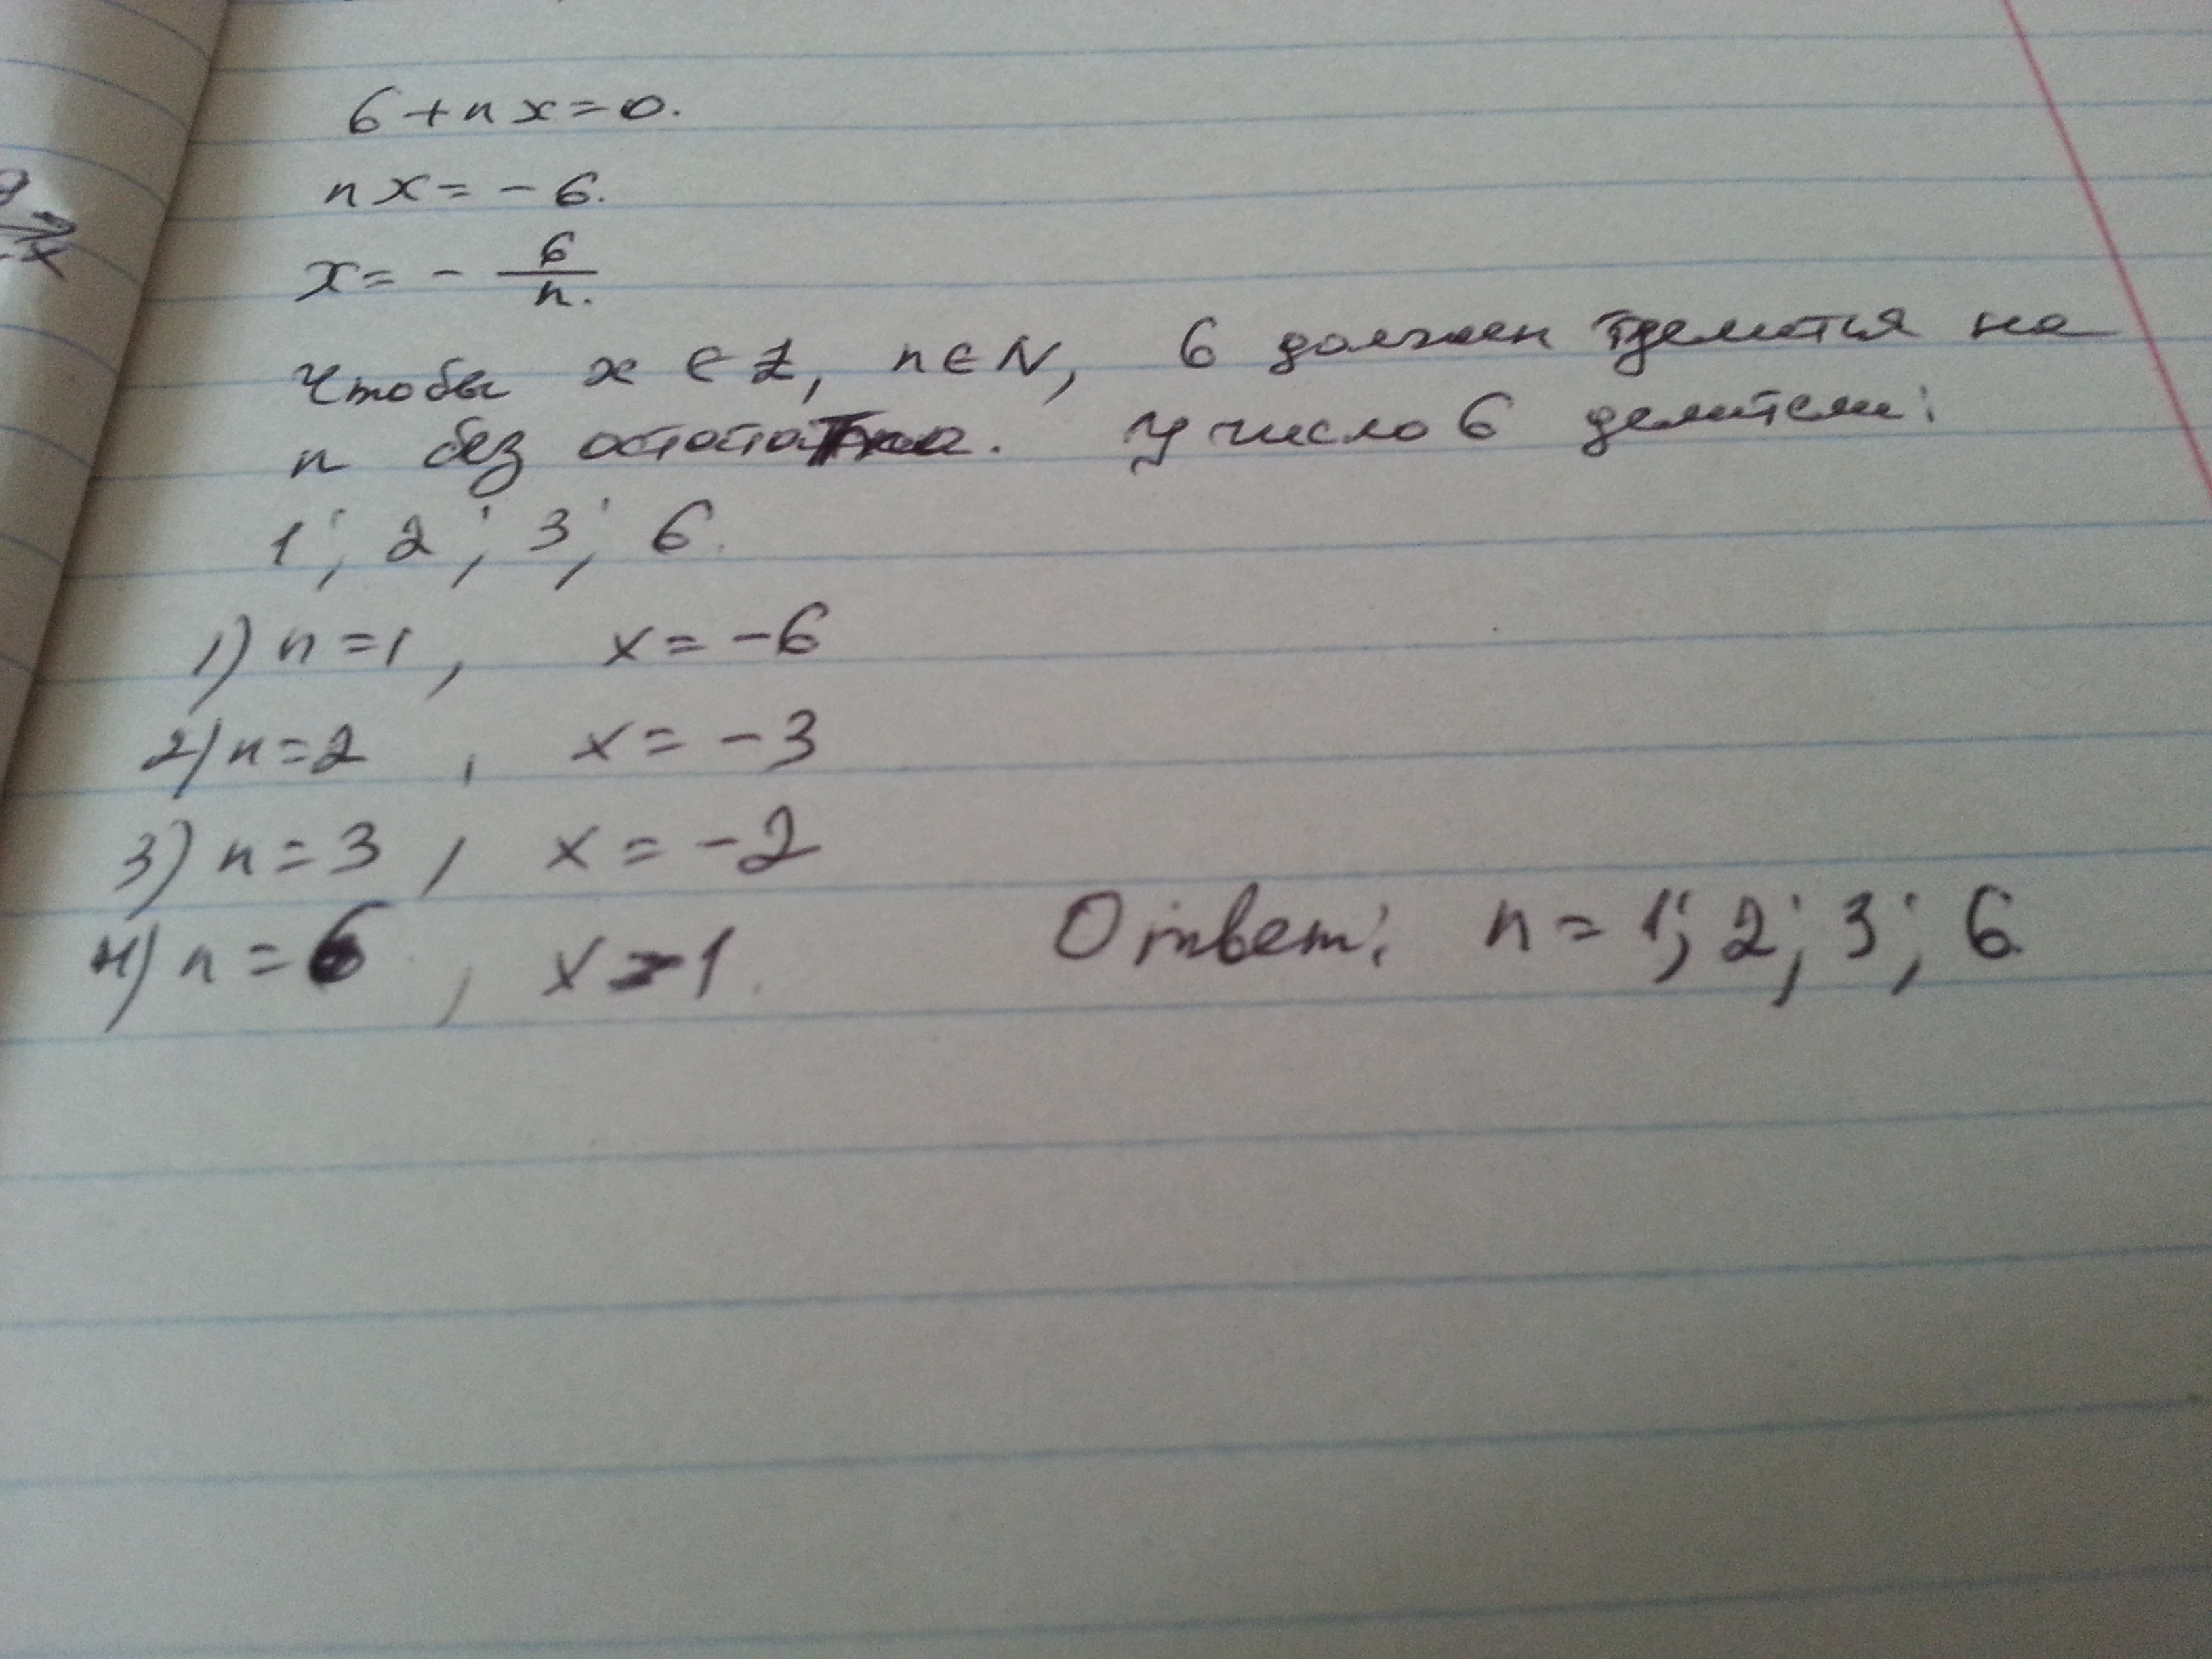 6+nx=0.
nx=-6.
x=-6/n.
Чтобы x∈Z, n∈N, 6 должен делится на
n без остатка. У число 6 делители:
1; 2; 3; 6.
1) n=1, x=-6
2) n=2, x=-3
3) n=3, x=-2
4) n=6, x=-1.
Ответ: n=1; 2; 3; 6